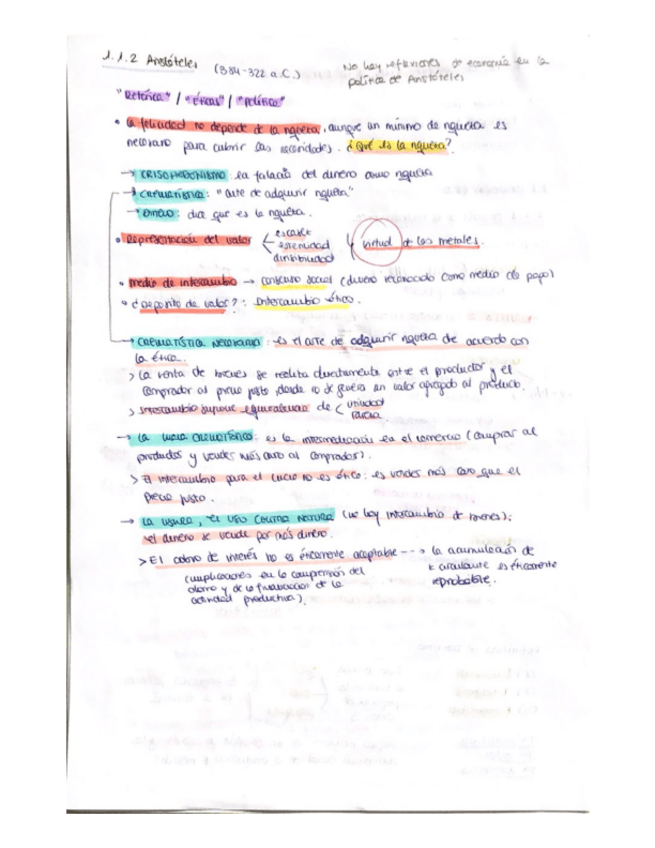 1.1.2 Aristóteles (384-322 a.C.)
No hay reflexiones de economía en la
política de Aristóteles
"Retórica" / "éticas" / "política"
• la felicidad no depende de la riqueza, aunque un mínimo de riqueza es
necesario para cubrir las necesidades. ¿Qué es la riqueza?
→ CRISOHEDONISMO: la falacia del dinero como riqueza
→ CREMATÍSTICA: "arte de adquirir riqueza"
→ DINERO: dice que es la riqueza.
• Representación del valor
escasez
eternidad
divisibilidad
virtud de los metales.
• medio de intercambio → consenso social (dinero reconocido como medio de pago)
• ¿deposito de valor?: Intercambio ético.
→ CREMATÍSTICA NECESARIA: es el arte de adquirir riqueza de acuerdo con
la ética.
> La venta de bienes se realiza directamente entre el productor y el
comprador al precio justo, donde no se genera un valor agregado al producto.
> Intercambio supone equivalencia de < utilidad
→ la mera crematística: es la intermediación en el comercio (comprar al
productor y vender más caro al comprador).
> El intercambio para el lucro no es ético: es vender más caro que el
precio justo.
→ La usura, el uso contra natura (no hay intercambio de bienes):
el dinero se vende por más dinero.
> El cobro de interés no es éticamente aceptable --→ la acumulación de
(implicaciones en la comprensión del
ahorro y de la financiación de la
actividad productiva).
circulante es éticamente
reprobable.